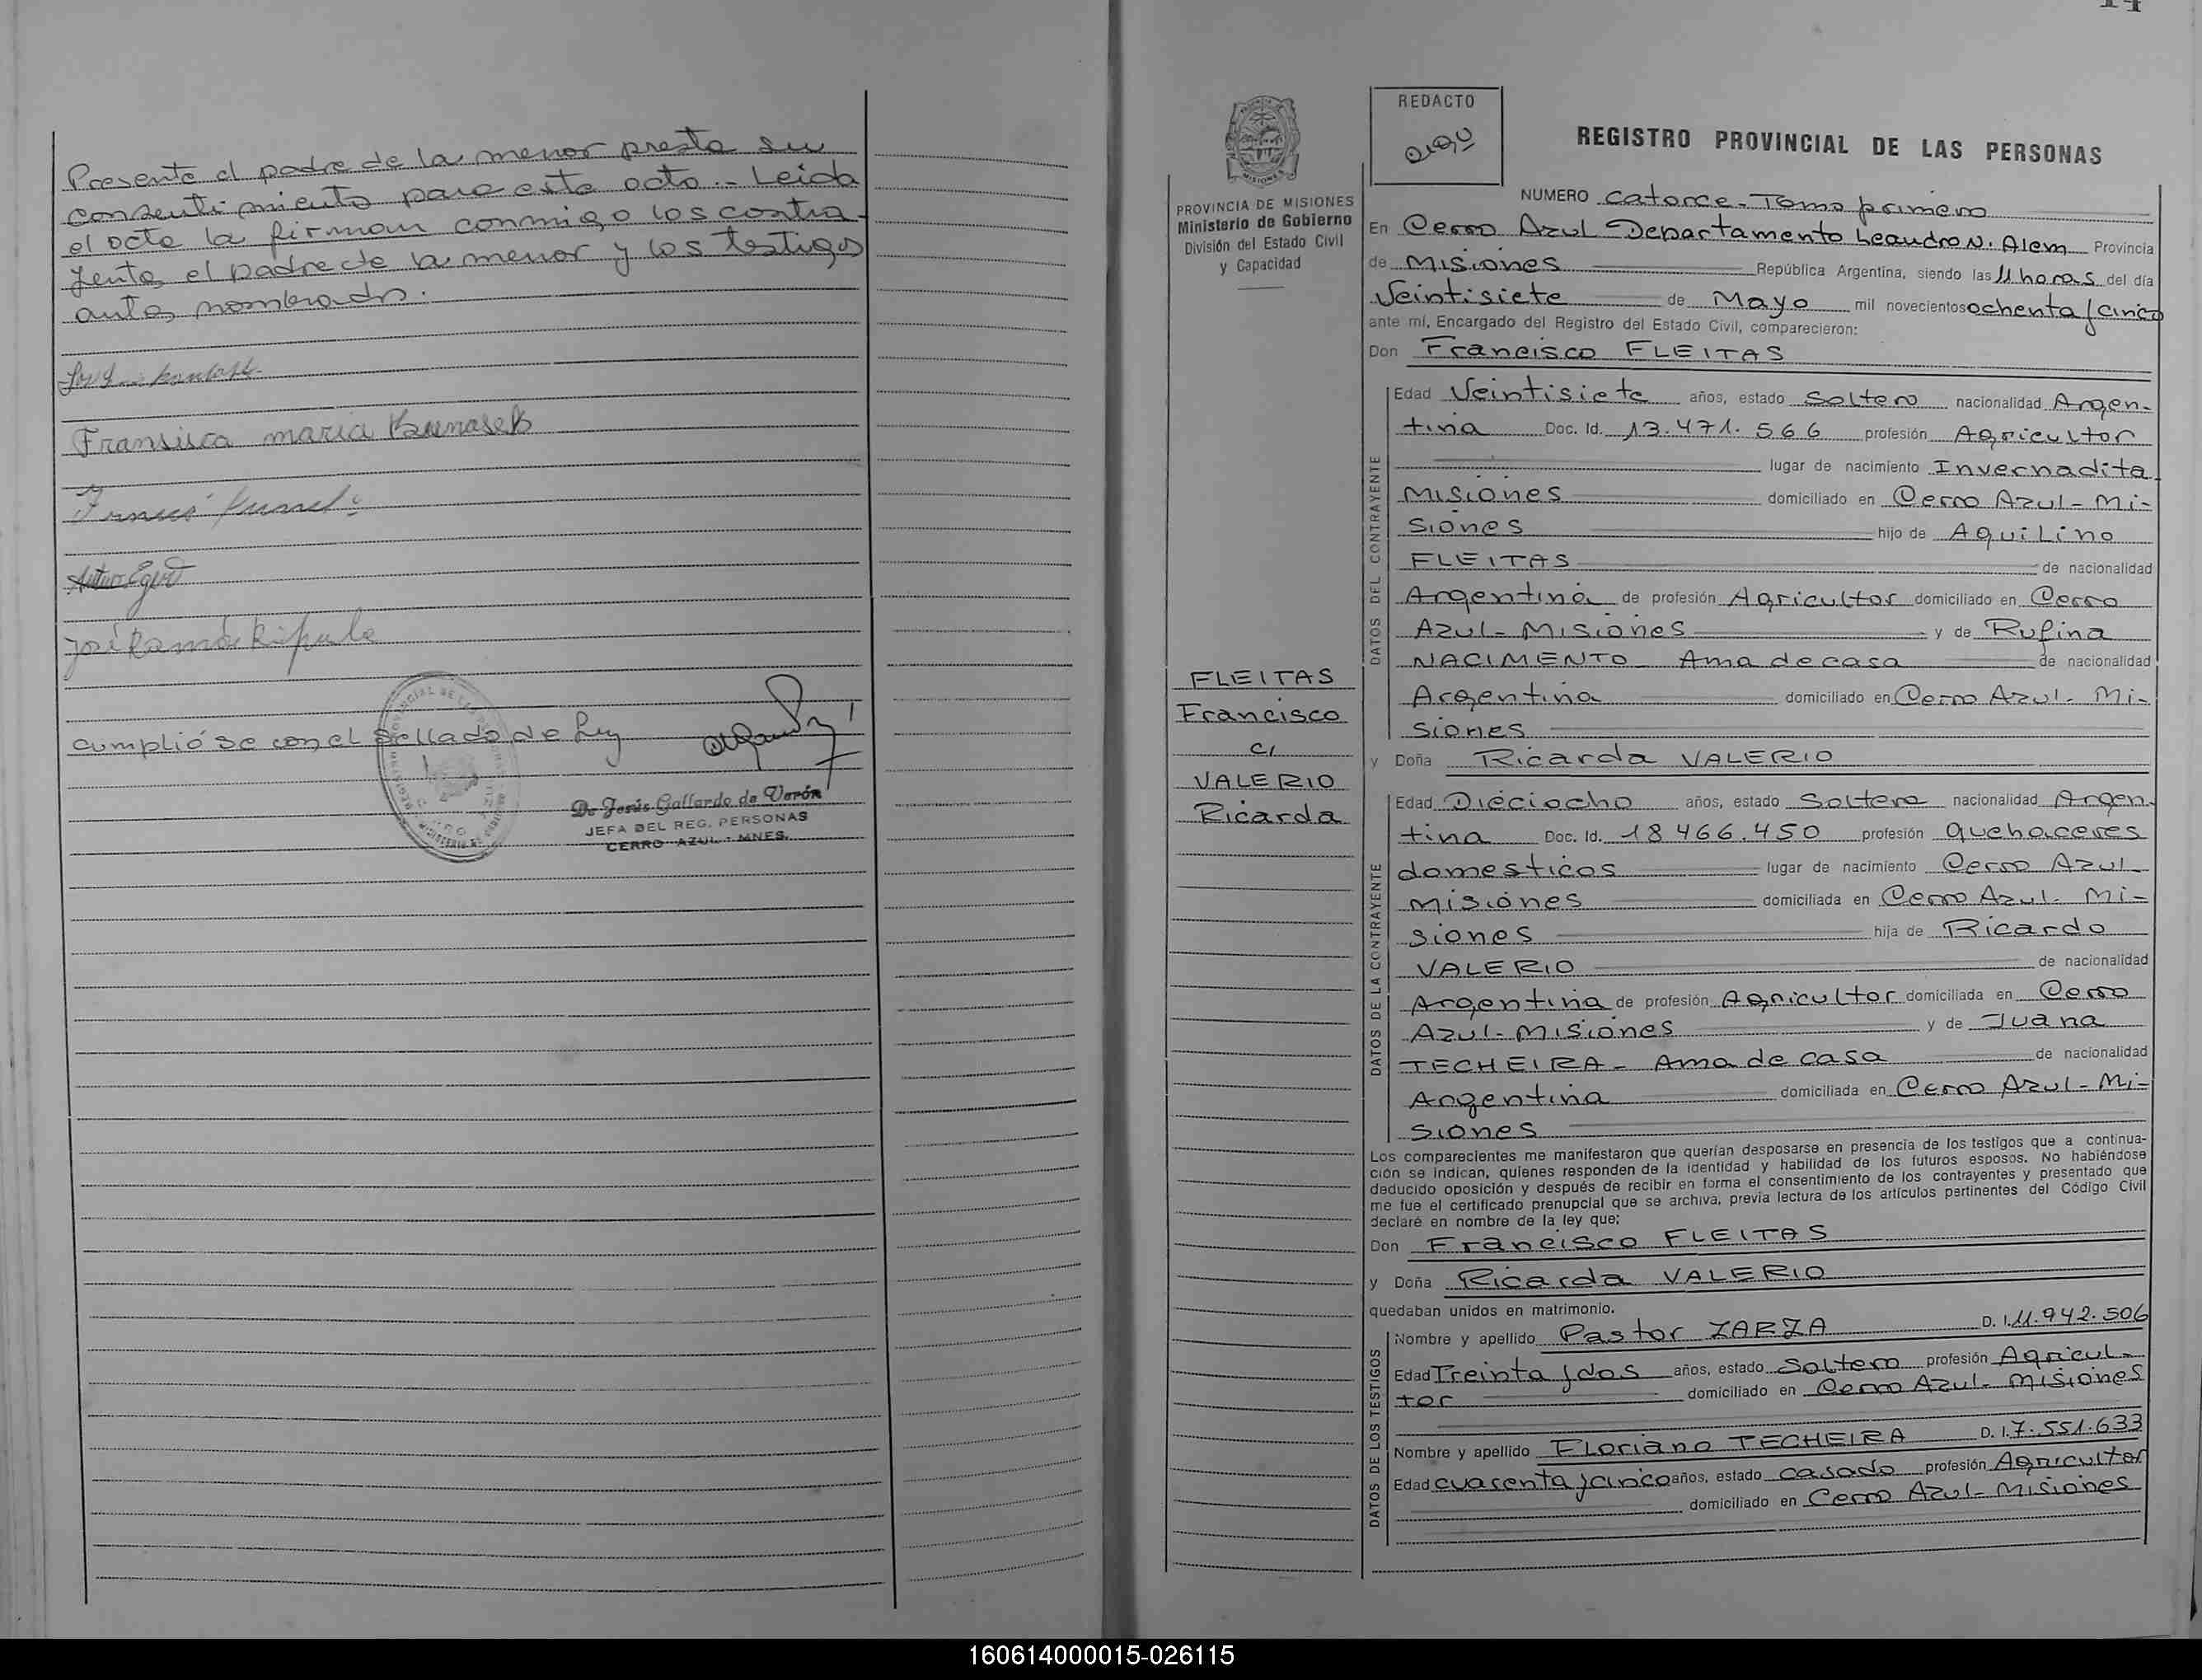 Presente el padre de la menor presta su
consentimiento para este acto.- Leida
el acta la firman conmigo los contra-
yentes, el padre de la menor y los testigos
antes nombrados.
Fransisca maria
Arturo
José Ramón
cumplióse con el sellado de Ley
De Jesús Gallardo de Verón
JEFA DEL REG. PERSONAS
CERRO AZUL - MNES.
14
PROVINCIA DE MISIONES
Ministerio de Gobierno
División del Estado Civil
y Capacidad
FLEITAS
Francisco
c/
VALERIO
Ricarda
REDACTO
REGISTRO PROVINCIAL DE LAS PERSONAS
NUMERO catorce - Tomo primero
En Cerro Azul Departamento Leandro N. Alem Provincia
de Misiones República Argentina, siendo las 11 horas del día
Veintisiete de Mayo mil novecientos ochenta y cinco
ante mí, Encargado del Registro del Estado Civil, comparecieron:
Don Francisco FLEITAS
DATOS DEL CONTRAYENTE
Edad Veintisiete años, estado Soltero nacionalidad Argen-
tina Doc. Id. 13.471.566 profesión Agricultor
lugar de nacimiento Invernadita
Misiones domiciliado en Cerro Azul - Mi-
siones hijo de Aquilino
FLEITAS de nacionalidad
Argentina de profesión Agricultor domiciliado en Cerro
Azul - Misiones y de Rufina
NACIMENTO - Ama de casa de nacionalidad
Argentina domiciliado en Cerro Azul - Mi-
siones
y Doña Ricarda VALERIO
DATOS DE LA CONTRAYENTE
Edad Dieciocho años, estado Soltera nacionalidad Argen-
tina Doc. Id. 18.466.450 profesión quehaceres
domesticos lugar de nacimiento Cerro Azul-
Misiones domiciliada en Cerro Azul - Mi-
siones hija de Ricardo
VALERIO de nacionalidad
Argentina de profesión Agricultor domiciliada en Cerro
Azul - Misiones y de Juana
TECHEIRA - Ama de casa de nacionalidad
Argentina domiciliada en Cerro Azul - Mi-
siones
Los comparecientes me manifestaron que querían desposarse en presencia de los testigos que a continua-
ción se indican, quienes responden de la identidad y habilidad de los futuros esposos. No habiéndose
deducido oposición y después de recibir en forma el consentimiento de los contrayentes y presentado que
me fue el certificado prenupcial que se archiva, previa lectura de los artículos pertinentes del Código Civil
declaré en nombre de la ley que:
Don Francisco FLEITAS
y Doña Ricarda VALERIO
quedaban unidos en matrimonio.
DATOS DE LOS TESTIGOS
Nombre y apellido Pastor ZARZA D. I. 11.942.506
Edad Treinta y dos años, estado Soltero profesión Agricul-
tor domiciliado en Cerro Azul - Misiones
Nombre y apellido Floriano TECHEIRA D. I. 7.551.633
Edad cuarenta y cinco años, estado casado profesión Agricultor
domiciliado en Cerro Azul - Misiones
160614000015-026115